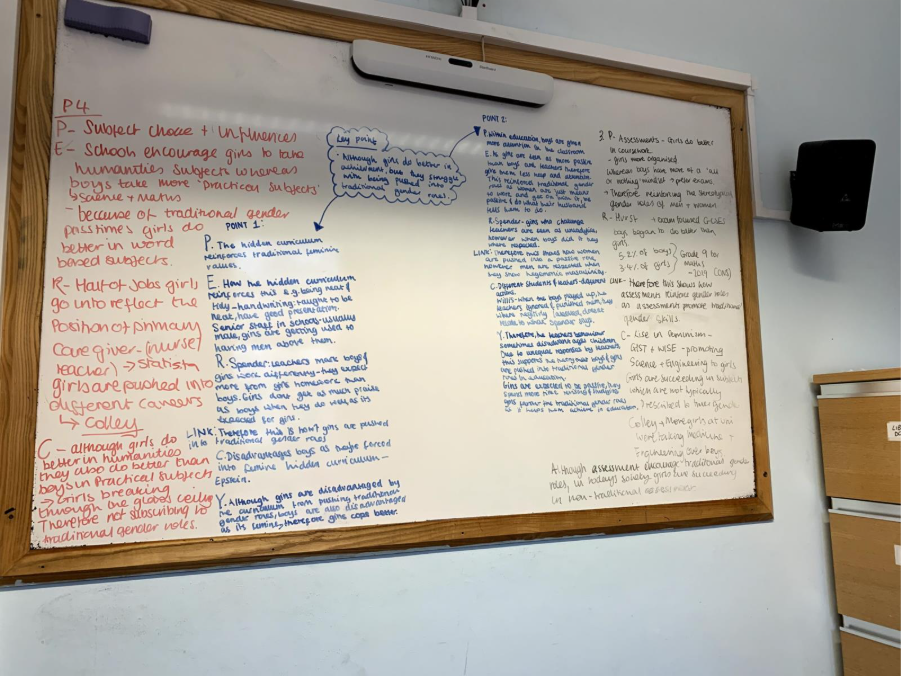 P4
P- Subject choice + Influences
E- School encourage girls to take
humanities subjects whereas
boys take more 'practical subjects'
↳ Science + Maths
- because of traditional gender
passtimes girls do
better in word
based subjects.
R- Half of jobs girls
go into reflect the
Position of primary
Care giver- (nurse/
teacher) → Statistn
girls are pushed into
different careers
↳ Colley
C - although girls do
better in humanities
they also do better than
boys in Practical subjects
→ Girls breaking
through the glass ceiling
Therefore not subscribing to
traditional gender roles.
Key point
- Although girls do better in
achievment, but they struggle
with being pushed into
traditional gender roles!
POINT 1:
P. The hidden curriculum
reinforces traditional feminine
values.
E. How the hidden curriculum
reinforces this e.g being neat &
tidy - handwriting: taught to be
neat, have good presentation.
Senior staff in schools - usually
male, girls are getting used to
having men above them.
R. Spender: teachers mark boys &
girls work differently - they expect
more from girls homework than
boys. Girls dont get as much praise
as boys when they do well as its
expected for girls.
LINK: Therefore this is how girls are pushed
into traditional gender roles
C. Disadvantages boys as maybe forced
into femine hidden curriculum -
Epstein.
Y. Although girls are disadvantaged by
the curriculum from pushing traditional
gender roles, boys are also disadvantages
as its femine, therefore girls cope better.
POINT 2:
P. Within education, boys are given
more attention in the classroom
E. As girls are seen as more passive
than boys and teachers therefore
give them less help and attention.
This reinforces traditional gender
tells him to do.
R. Spender - girls who challenge
teachers are seen as unladylike,
however when boys did it they
where respected.
are pushed into a passive role,
however men are respected when
they show hegemonic masculinity.
C. Different students & teachers - different
Willis - when the boys played up, the
teachers ignored & punished them, they
Y. Therefore, the teachers behaviour
sometimes disadvantages children
Due to unequal responses by teachers,
are pushed into traditional gender
roles in education.
Girls are expected to be passive, they
spend more time working & studying
as it helps them achieve in education.
3 P- Assessments - Girls do better
in coursework.
- girls more organised
whereas boys have more of a 'all
or nothing mindset' → prefer exams.
roles of men + women.
boys began to do better than
girls.
5.2% of boys
3.4% of girls
Grade 9 for
maths
- 2019 (ONS)
LINK - therefore this shows how
assessments reinforce gender roles
as assessments promote traditional
gender skills.
C- Rise in feminism -
GIST + WISE - promoting
Science + Engineering to girls
Girls are succeeding in subjects
which are not typically
Colley - More girls at uni
were taking medicine +
Engineering over boys
Although assessment encourage traditional gender
roles, in todays society girls are succeeding
in non-traditional